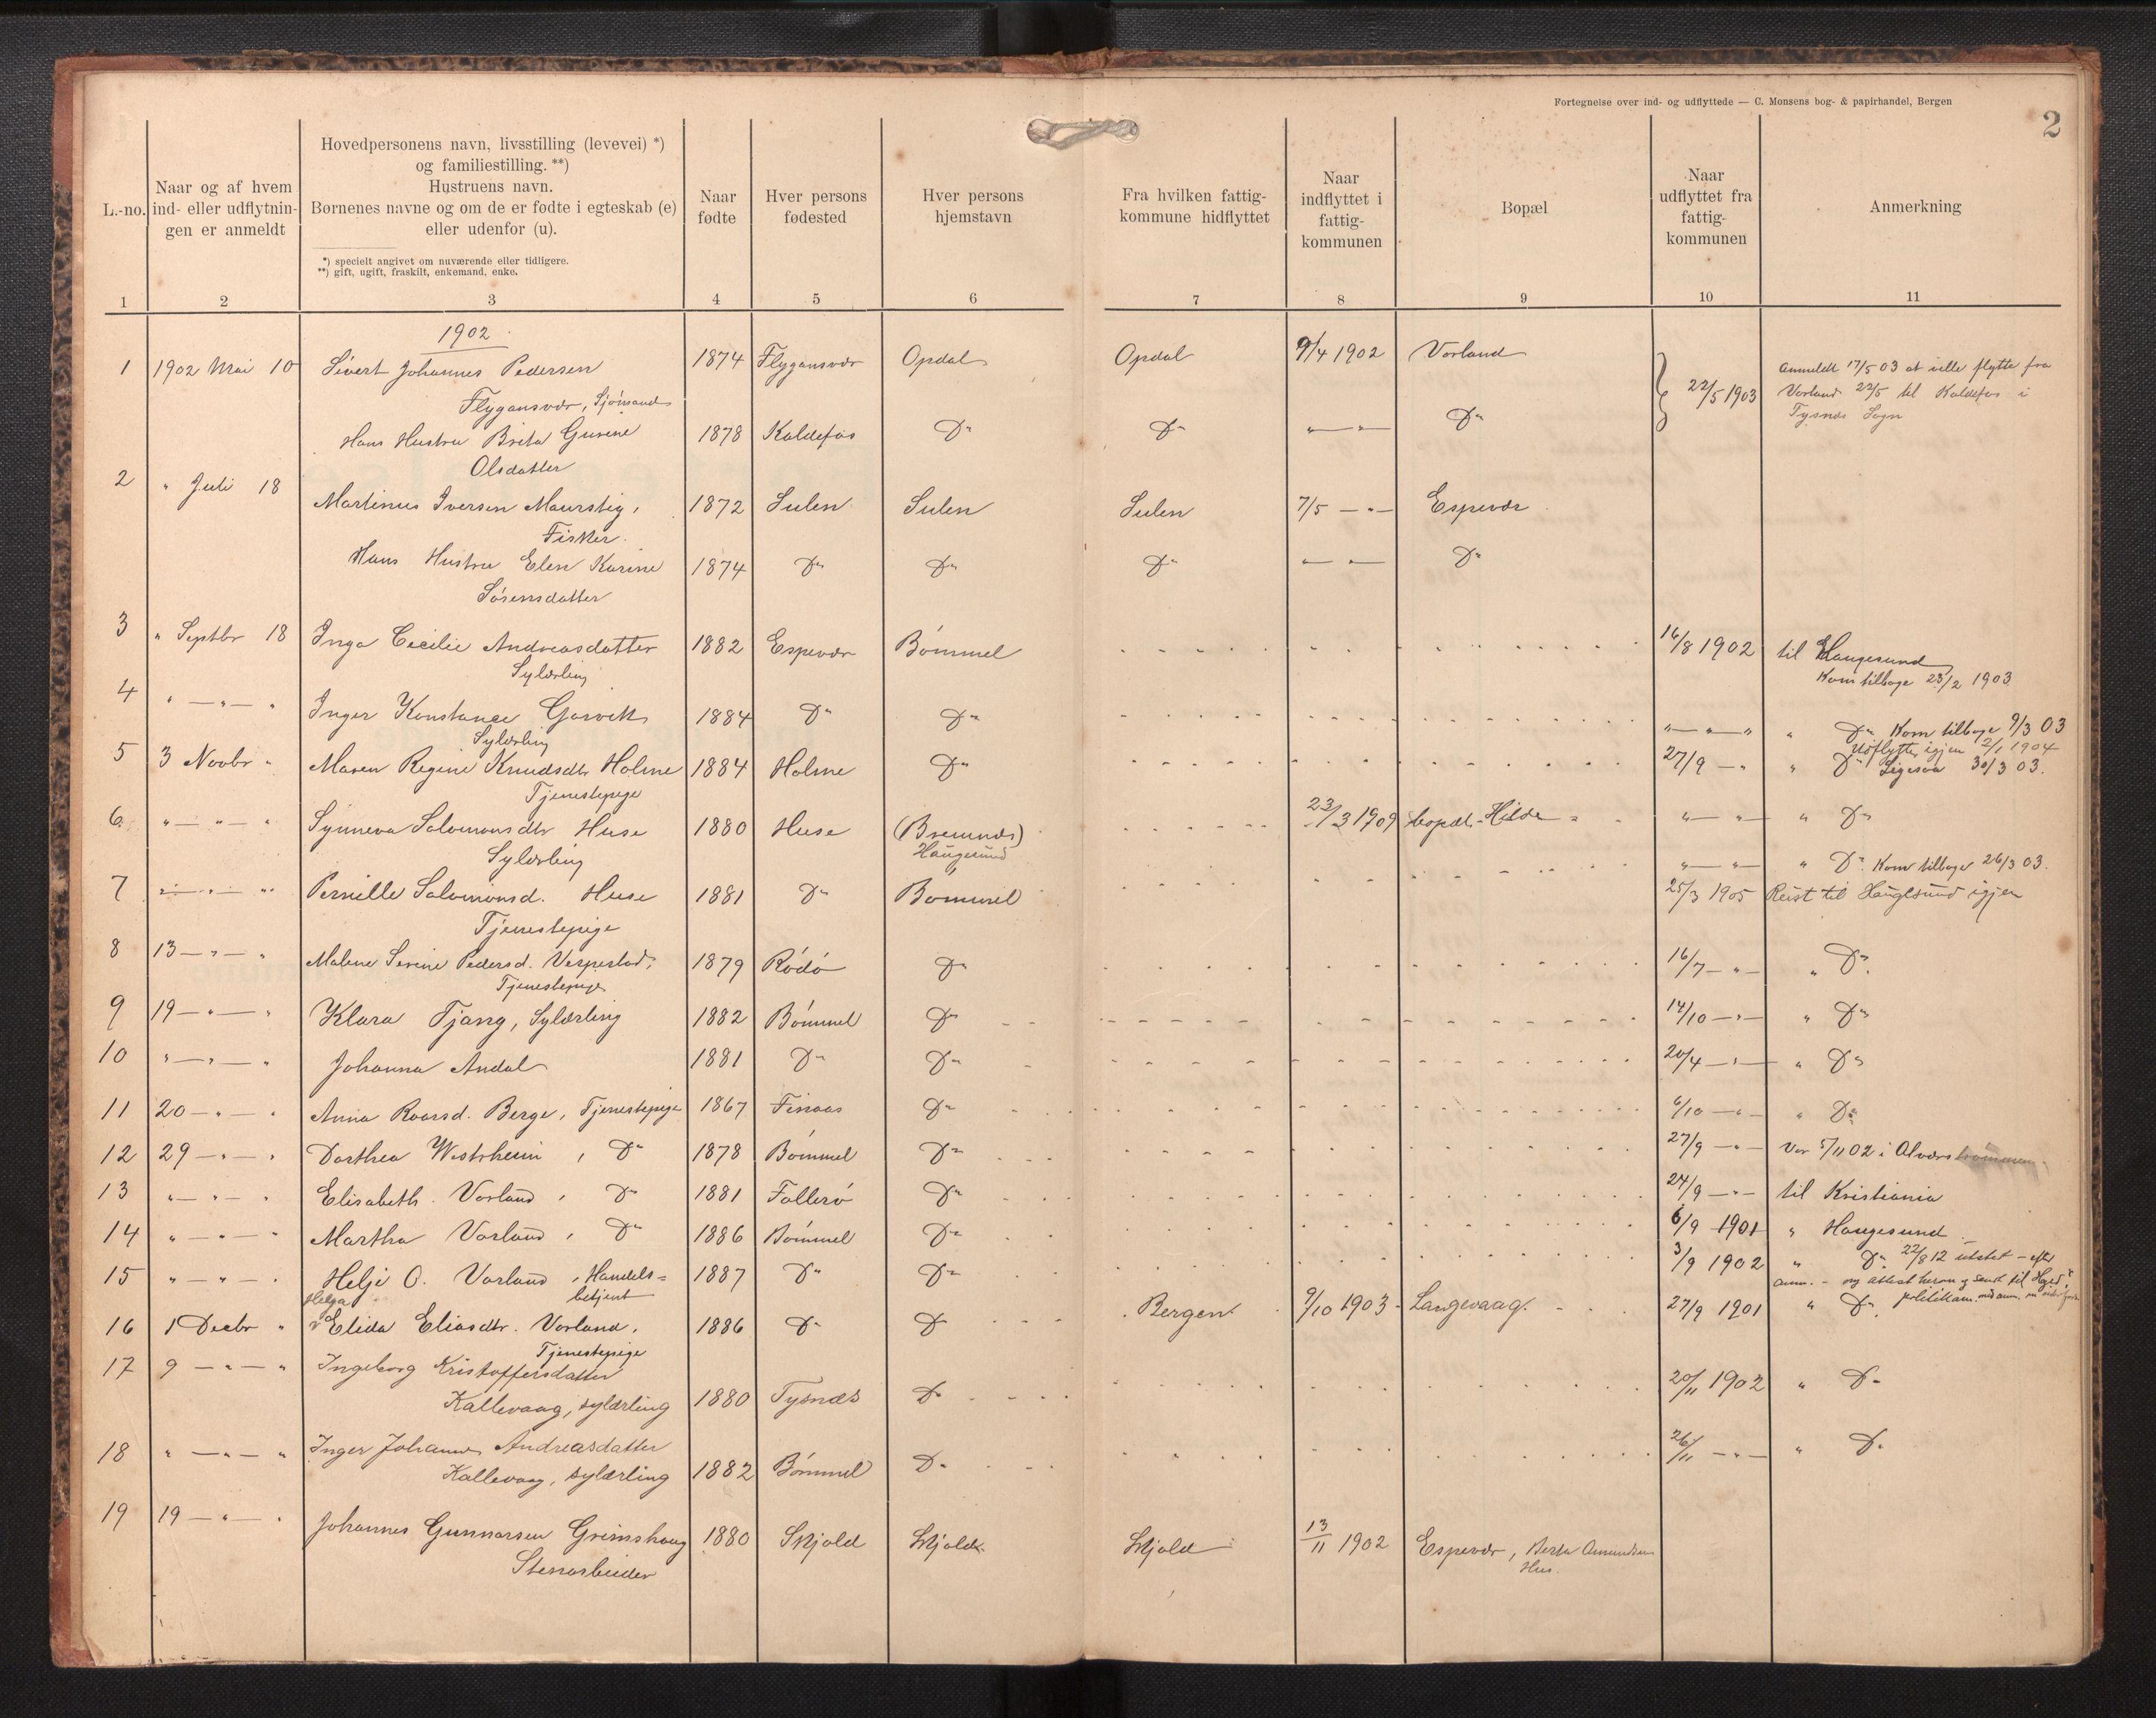 Fortegnelse over ind- og udflyttede — C. Monsens bog- & papirhandel, Bergen
2
L.-no.
Naar og af hvem
ind- eller udflytnin-
gen er anmeldt
Hovedpersonens navn, livsstilling (levevei) *)
og familiestilling. **)
Hustruens navn.
Børnenes navne og om de er fødte i egteskab (e)
eller udenfor (u).
*) specielt angivet om nuværende eller tidligere.
**) gift, ugift, fraskilt, enkemand, enke.
Naar
fødte
Hver persons
fødested
Hver persons
hjemstavn
Fra hvilken fattig-
kommune hidflyttet
Naar
indflyttet i
fattig-
kommunen
Bopæl
Naar
udflyttet fra
fattig-
kommunen
Anmerkning
1 2 3 4 5 6 7 8 9 10 11
1902
1 1902 Mai 10 Sivert Johannes Pedersen 1874 Flygansvær Opdal Opdal 9/4 1902 Vorland
Flygansvær, Sjömand
22/5 1903 Anmeldt 17/5 03 at ville flytte fra
Vorland 22/5 til Kaldefos i
Tysnes Sogn
Hans Hustru Brita Gurine 1878 Kaldefos Do Do " — " — Do
Olsdatter
2 " Juli 18 Martinus Iversen Maurstig, 1872 Sulen Sulen Sulen 7/5 — " — Espevær
Fisker.
Hans Hustru Elen Karine 1874 Do Do Do " — " — Do
Sörensdatter
3 " Septbr 18 Inga Cecilie Andreasdatter 1882 Espevær Bömmel 16/8 1902 til Haugesund
Sylærling Kom tilbage 23/2 1903
4 " — " — " Inger Konstance Gorvik 1884 Do Do " — " — " " Do Kom tilbage 9/3 03
Sylærling Udflytte igjen 2/1 1904
5 3 Novbr " Maren Regine Knudsdtr Holme 1884 Holme Do 27/9 — " " Do Ligesaa 30/3 03.
Tjenestepige
6 " — " — " Synneva Salomonsdtr Huse 1880 Huse (Bremnes) 23/3 1909 bopæl. Hilde " — " — " Do
Sylærling Haugesund
" — " — " Do. Kom tilbage 26/3 03.
7 " — " — " Pernille Salomonsd. Huse 1881 Do Bömmel 25/3 1905 Reist til Haugesund igjen
Tjenestepige
8 13 — " — " Malene Serine Pedersd. Vespestad, 1879 Rödö Do 16/7 — " — " Do.
Tjenestepige
9 19 — " — " Klara Tjang, Sylærling 1882 Bömmel Do 14/10 — " — " Do
10 " — " — " Johanna Andal 1881 Do Do 20/4 — " — " Do
11 20 — " — " Anna Roarsd. Berge, Tjenestepige 1867 Finaas Do 6/10 — " — " Do
12 29 — " — " Dorthea Westrheim, Do 1878 Bömmel Do 27/9 — " — Var 5/11 02 i Alvers
13 " — " — " Elisabeth Vorland, Do 1881 Folleró Do 24/9 — " — til Kristiania
14 " — " — " Martha Vorland, Do 1886 Bömmel Do 6/9 1901 " Haugesund
15 " — " — " Helje O. Vorland, Handels= 1887 Do Do 3/9 1902 " Do. 22/8 12 utstet — efter
betjent anm. — ny attest herom og sendt til Hgsd
politikam.
Helga
16 1 Decbr " Elida Eliasdtr. Vorland, 1886 Do Do Bergen 9/10 1903 Langevaag. 27/9 1901 " Do.
Tjenestepige
17 9 — " — " Ingeborg Kristoffersdatter
Kallevaag, sylærling 1880 Tysnæs Do 20/11 1902 " Do
18 " — " — " Inger Johanne Andreasdatter
Kallevaag, sylærling 1882 Bömmel Do 26/11 — " — " Do
19 19 — " — " Johannes Gunnarsen Grimshaug 1880 Skjold Skjold Skjold 13/11 1902 Espevær, Berta Amundsens
Stenarbeider Hus.